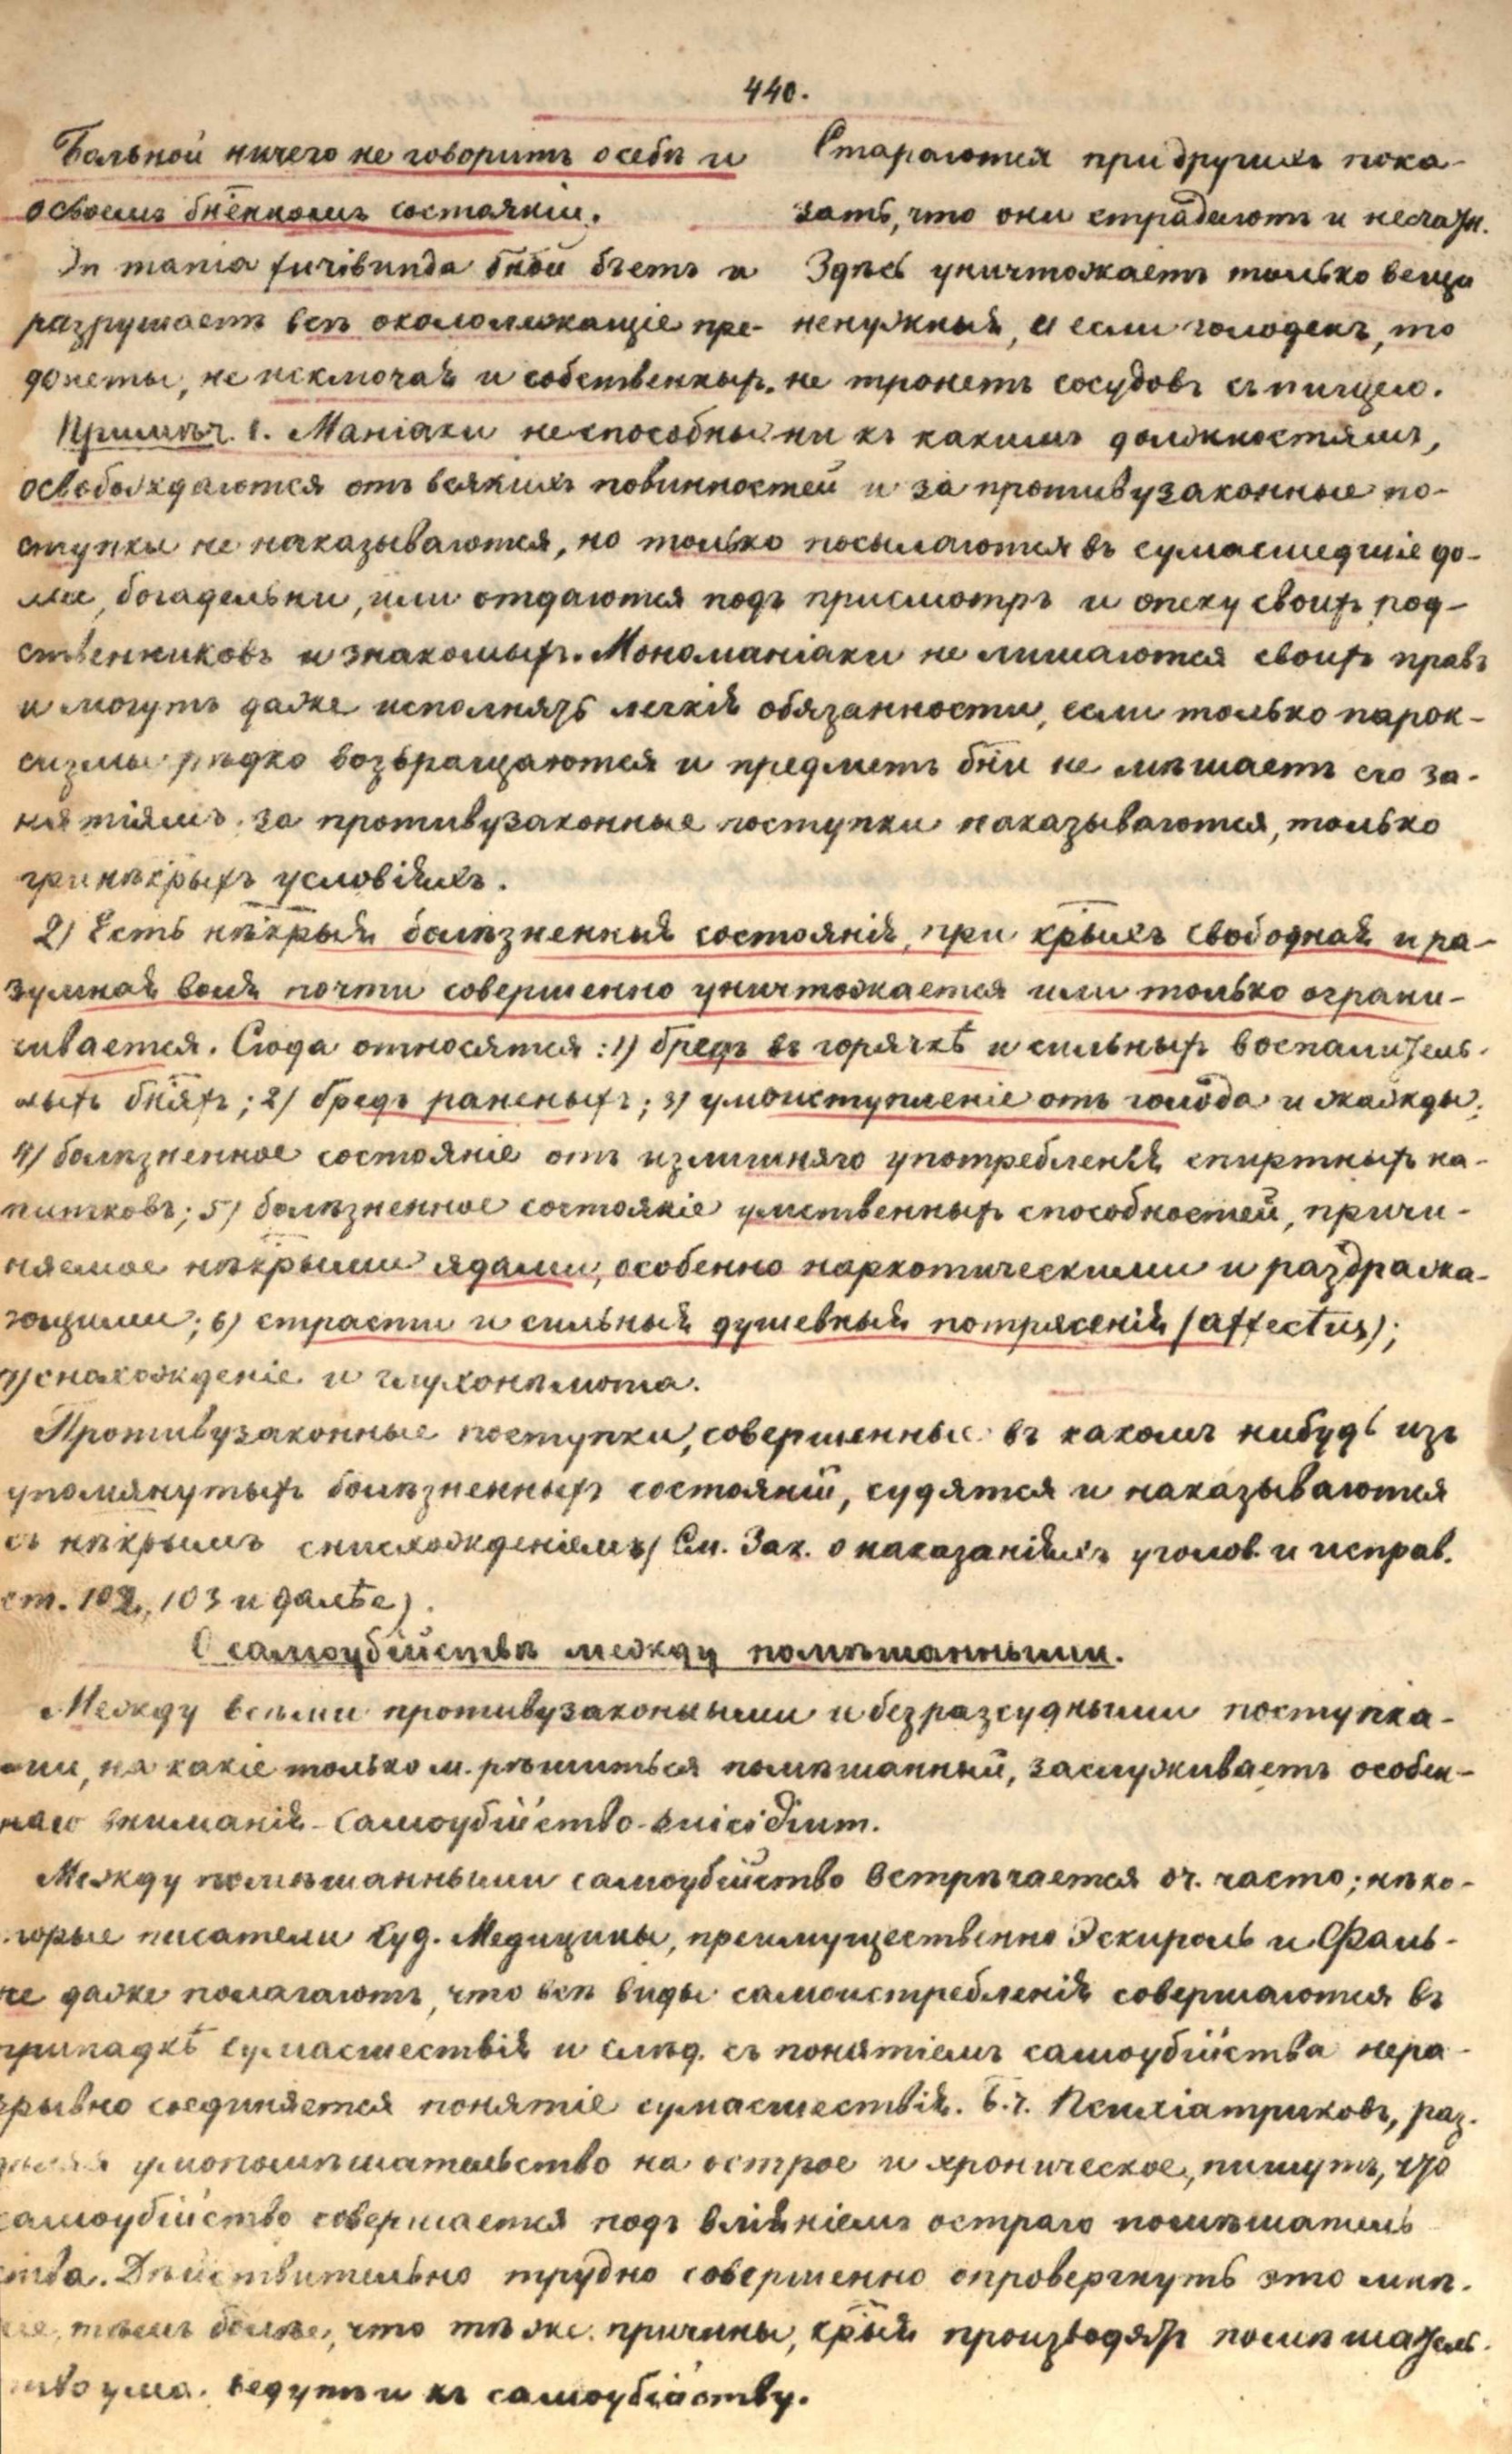 440.
Больной ничего не говоритъ о себѣ и
о своемъ бнѣнномъ состояніи.
In mania furibunda бной бьетъ и
разрушаетъ всѣ окололежащіе пре-
дметы, не исключая и собственныхъ.
Стараются при другихъ пока-
зать, что они страдаютъ и несчастн.
Здѣсь уничтожаетъ только вещи
ненужныя, а если голоденъ, то
не тронетъ сосудовъ съ пищею.
Примѣч. 1. Маніаки неспособны ни къ какимъ должностямъ,
освобождаются отъ всякихъ повинностей и за противузаконные по-
ступки не наказываются, но только посылаются въ сумасшедшіе до-
ма, богадельни, или отдаются подъ присмотръ и опеку своихъ род-
ственниковъ и знакомыхъ. Мономаніаки не лишаются своихъ правъ
и могутъ даже исполнять легкія обязанности, если только парок-
сизмы рѣдко возвращаются и предметъ бни не мѣшаетъ его за-
нятіямъ. за противузаконные поступки наказываются, только
при нѣкрыхъ условіяхъ.
2) Есть нѣкрыя болѣзненныя состоянія, при крыхъ свободная и ра-
зумная воля почти совершенно уничтожается или только ограни-
чивается. Сюда относятся: 1) бредъ въ горячкѣ и сильныхъ воспалитель-
ныхъ бняхъ; 2) бредъ раненыхъ; 3) умоизступленіе отъ голода и жажды;
4) болѣзненное состояніе отъ излишняго употребленія спиртныхъ на-
питковъ; 5) болѣзненное состояніе умственныхъ способностей, причи-
няемое нѣкрыми ядами, особенно наркотическими и раздража-
ющими; 6) страсти и сильныя душевныя потрясенія (affectus);
7) снахожденіе и глухонѣмота.
Противузаконные поступки, совершенные въ какомъ нибудь изъ
упомянутыхъ болѣзненныхъ состояній, судятся и наказываются
съ нѣкрымъ снисхожденіемъ (См. Зак. о наказаніяхъ уголов. и исправ.
ст. 102, 103 и далѣе).
О самоубійствѣ между помѣшанными.
Между всѣми противузаконными и безразсудными поступка-
ми, на какіе только м. рѣшиться помѣшанный, заслуживаетъ особен-
наго вниманія - самоубійство - suicidium.
Между помѣшанными самоубійство встрѣчается оч. часто; нѣко-
торые писатели Суд. Медицины, преимущественно Эскироль и Фаль-
ре даже полагаютъ, что всѣ виды самоистребленія совершаются въ
припадкѣ сумасшествія и слѣд. съ понятіемъ самоубійства нера-
зрывно соединяется понятіе сумасшествія. Б. ч. Психіатриковъ, раз-
дѣляя умопомѣшательство на острое и хроническое, пишутъ, что
самоубійство совершается подъ вліяніемъ остраго помѣшатель-
ства. Дѣйствительно трудно совершенно опровергнуть это мнѣ-
ніе, тѣмъ болѣе, что тѣ же причины, крыя производятъ помѣшатель-
ство ума. ведутъ и къ самоубійству.